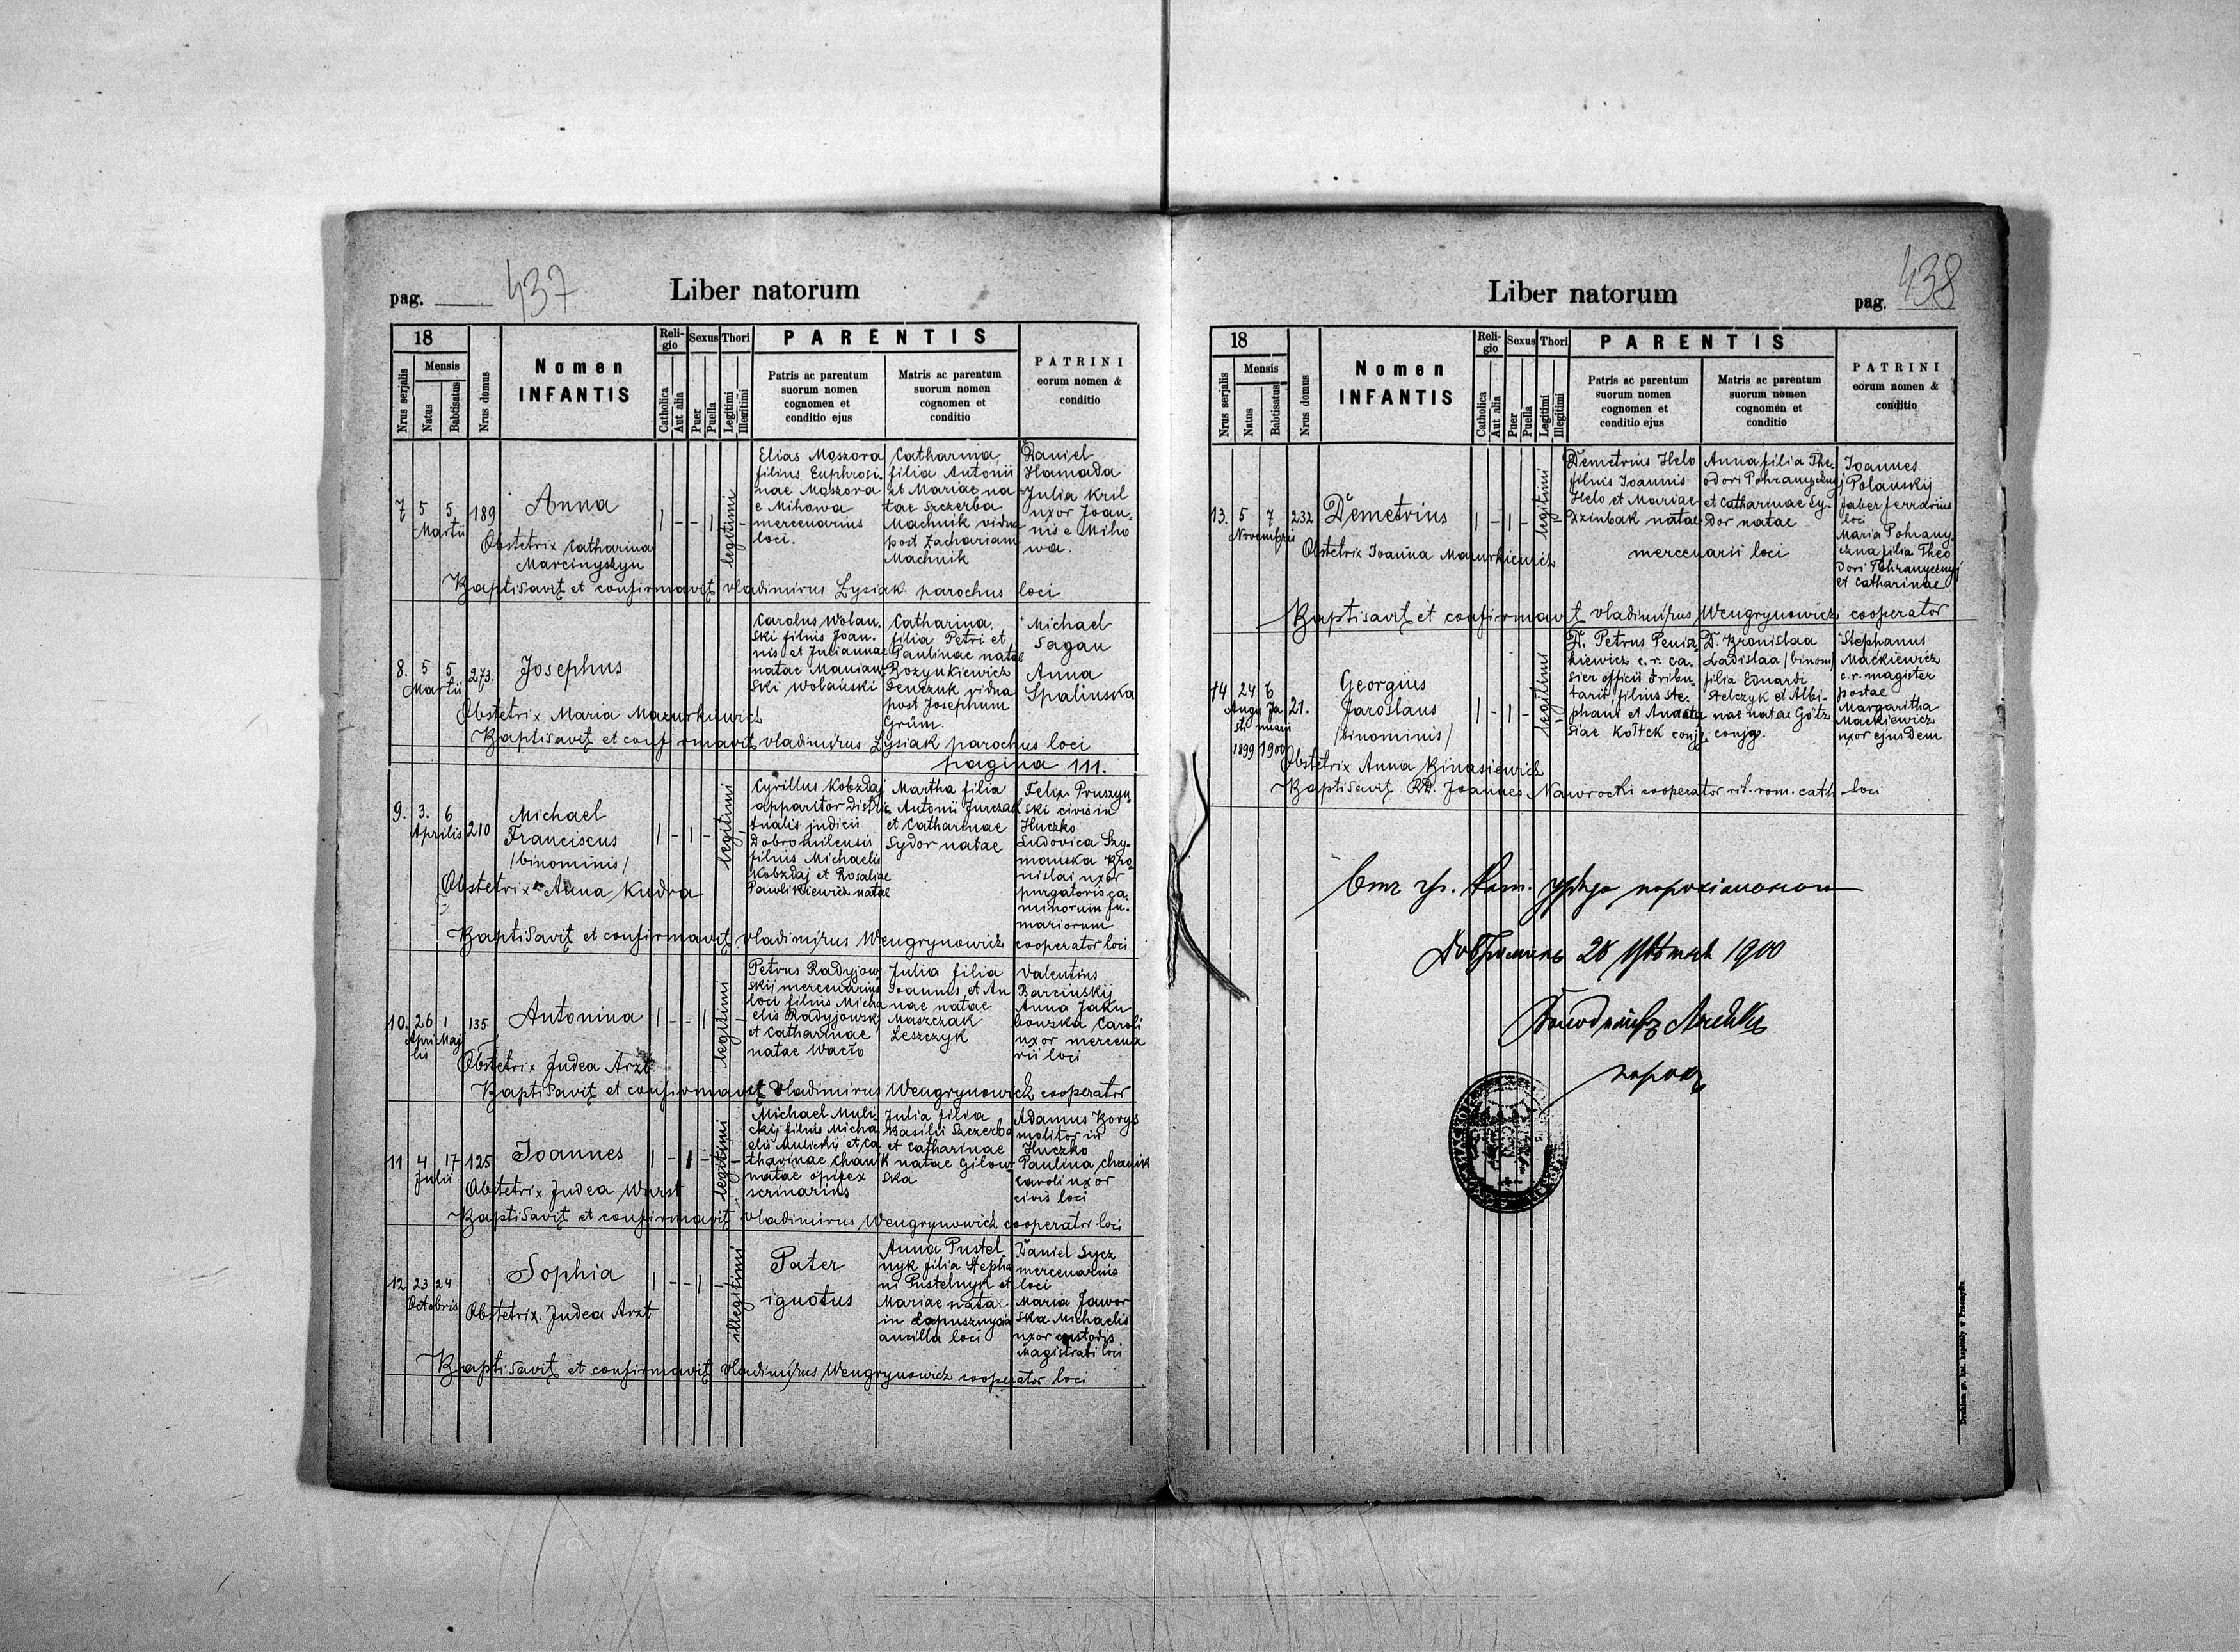 pag. 437
Liber natorum
18
Mensis
Nrus serjalis
Natus
Babtisatus
Nrus domus
Nomen
INFANTIS
Religio
Catholica
Aut alia
Sexus
Puer
Puella
Thori
Legitimi
Illegitimi
PARENTIS
Patris ac parentum
suorum nomen
cognomen et
conditio ejus
Matris ac parentum
suorum nomen
cognomen et
conditio
PATRINI
eorum nomen &
conditio
7 5 5 189
Martii
Anna
Obstetrix Catharina
Marcinyszyn
1 - - 1
legitimi
Elias Moszora
filius Euphrosi-
nae Moszora
e Mihowa
mercenarius
loci.
Catharina,
filia Antonii
et Mariae na
tae Szczerba
Machnik vidua
post Zachariam
Machnik
Daniel
Hamada
Julia Kril
uxor Joan-
nis e Miho
wa.
Baptisavit et confirmavit Vladimirus Lysiak parochus loci
8. 5 5 273.
Martii
Josephus
Obstetrix Maria Mazurkiewicz
Carolus Wolan-
ski filius Joan-
nis et Julianna
natae Maniaw
ski Wolański
Catharina,
filia Petri et
Paulinae natae
Bozynkiewicz
Fenczuk vidua
post Josephum
Grüm.
Michael
Sagan
Anna
Spalinska
Baptisavit et confirmavit Vladimirus Lysiak parochus loci
pagina 111.
9. 3. 6 210
Aprilis
Michael
Franciscus
/binominis/
Obstetrix Anna Kudra
1 - 1 -
legitimi
Cyrillus Kobzdaj
apparitor distri
ctualis judicii
Dobromilensis
filius Michaelis
Kobzdaj et Rosaliae
Pawlikiewicz natae
Martha filia
Antonii Jurczak
et Catharinae
Sydor natae
Felix Pruszyn-
ski civis in
Huczko
Ludovica Szy-
mańska Bro-
nislai uxor
purgatoris ca-
minorum fu-
mariorum
Baptisavit et confirmavit Vladimirus Wengrynowicz cooperator loci
10. 26 1 135
Apri Maj
lis
Antonina
Obstetrix Judea Arzt
1 - - 1 -
legitimi
Petrus Radyjow
skij mercenarius
loci filius Micha
elis Radyjowsk
et Catharinae
natae Wacio
Julia filia
Joannis et An
nae natae
Maszczak
Leszczyk
Valentius
Barcinskij
Anna Jaku
bowska Caroli
uxor mercena
rii loci
Baptisavit et confirmavit Vladimirus Wengrynowicz cooperator
11 4 17 125
Julii
Joannes
Obstetrix Judea Wurst
1 - 1 - -
legitimi
Michael Muli
ckij filius Micha
elis Mulickij et Ca
tharinae Chani
natae opifex
scrinarius
Julia filia
Basilii Szczerba
et Catharinae
K natae Gilow
ska
Adamus Borys
molitor in
Huczko
Paulina Chanik
Caroli uxor
civis loci
Baptisavit et confirmavit Vladimirus Wengrynowicz cooperator loci
12 23 24
Octobris
Sophia
Obstetrix Judea Arzt
1 - - 1 -
illegitimi
Pater
ignotus
Anna Pustel
nyk filia Stepha
ni Pustelnyk et
Mariae nata
in Lapusznycia
ancilla loci
Daniel Sycz
mercenarius
loci
Maria Jawor
ska Michaelis
uxor custodis
magistrati loci
Baptisavit et confirmavit Vladimirus Wengrynowicz cooperator loci
Liber natorum
pag. 438
18
Mensis
Nrus serjalis
Natus
Babtisatus
Nrus domus
Nomen
INFANTIS
Religio
Catholica
Aut alia
Sexus
Puer
Puella
Thori
Legitimi
Illegitimi
PARENTIS
Patris ac parentum
suorum nomen
cognomen et
conditio ejus
Matris ac parentum
suorum nomen
cognomen et
conditio
PATRINI
eorum nomen &
conditio
13. 5 7 232
Novembris
Demetrius
Obstetrix Joanna Mazurkiewicz
1 - 1 -
legitimi
Demetrius Helo
filius Joannis
Helo et Mariae
Dziubak natae
Anna filia The-
odori Pohranycznyj
et Catharinae Sy-
dor natae
mercenarii loci
Joannes
Polanskij
faber ferrarius
loci
Maria Pohrany-
czna filia Theo
dori Pohranycznyj
et Catharinae
Baptisavit et confirmavit Vladimirus Wengrynowicz cooperator
14 24 6 21.
Augu Ja
sti nuarii
1899 1900
Georgius
Jaroslaus
/binominis/
Obstetrix Anna Binasiewicz
1 - 1 -
legitimi
D. Petrus Penisz-
kiewicz c. r. ca-
sier officii tribu-
tarii filius Ste-
phani et Anasta
siae Kołtek conjg.
D. Bronislaa
Ladislaa /binom/
filia Eduardi
Stelczyk et Albi-
nae natae Götz
conjg.
Stephanus
Mackiewicz
c. r. magister
postae
Margaritha
Mackiewicz
uxor ejusdem
Baptisavit RD. Joannes Nawrocki cooperator rit. rom. cath. loci
Отъ гр. кат. уряда парохіяльного
Добромиль 28 1900
парохъ
Drukiem gr. kat. kapituły w Przemyślu